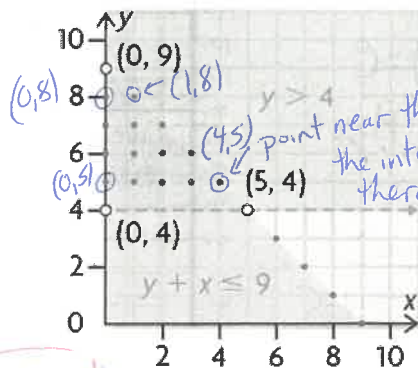 y
10
(0, 9)
(0,8)
(1,8)
8
y > 4
(4,5)
point near th
6
the int
(0,5)
ther
(5, 4)
4
(0, 4)
2
y + x ≤ 9
x
0
2 4 6 8 10